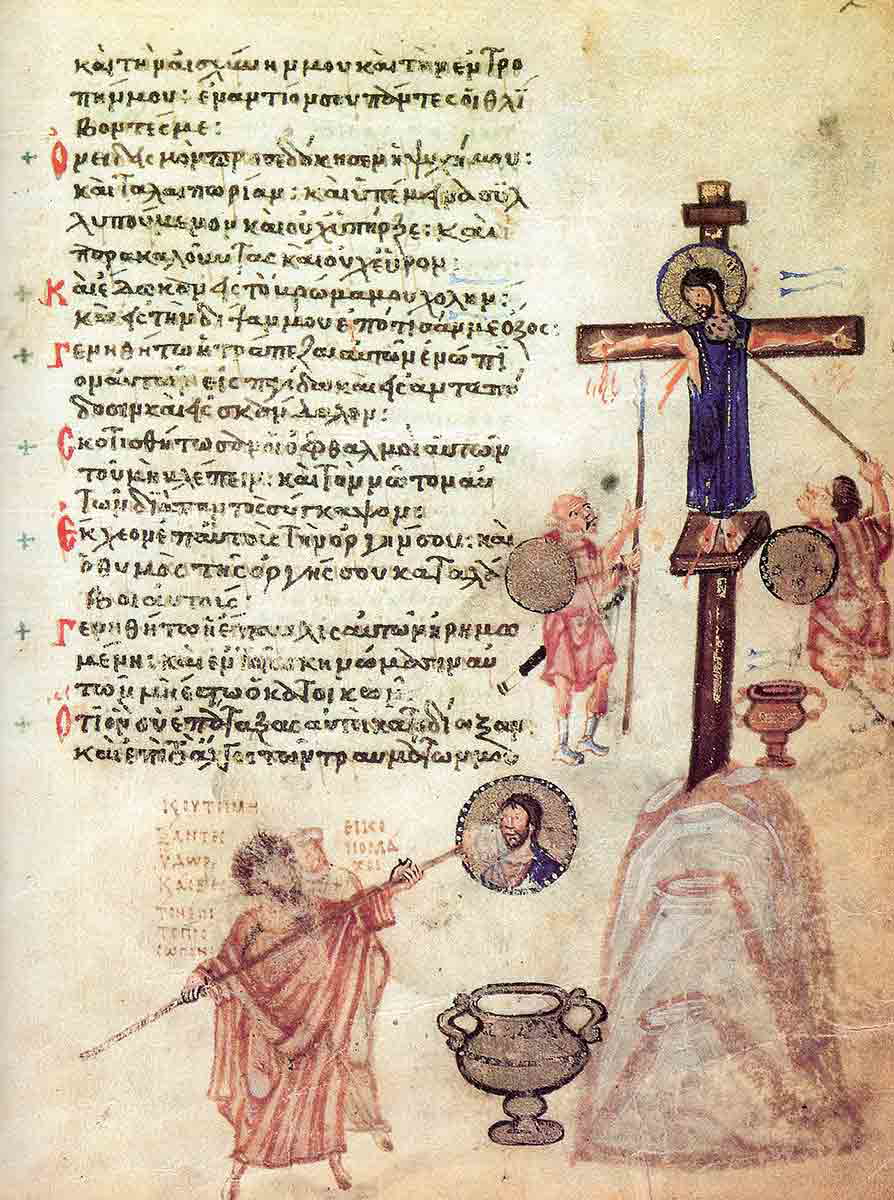 καὶ τὴν αἰσχύνην μου καὶ τὴν ἐντρο
πήν μου: ἐναντίον σου πάντες οἱ θλί
βοντές με:
Ὀνειδισμὸν προσεδόκησεν ἡ ψυχή μου:
καὶ ταλαιπωρίαν: καὶ ὑπέμεινα συλ
λυπούμενον καὶ οὐχ ὑπῆρξε: καὶ
παρακαλοῦντας καὶ οὐχ εὗρον:
Καὶ ἔδωκαν εἰς τὸ βρῶμα μου χολὴν:
καὶ εἰς τὴν δίψαν μου ἐπότισάν με ὄξος:
Γενηθήτω ἡ τράπεζα αὐτῶν ἐνώπι
ον αὐτῶν εἰς παγίδα καὶ εἰς ἀνταπό
δοσιν καὶ εἰς σκάνδαλον:
Σκοτισθήτωσαν οἱ ὀφθαλμοὶ αὐτῶν
τοῦ μὴ βλέπειν: καὶ τὸν νῶτον αὐ
τῶν διὰ παντὸς σύγκαμψον:
Ἔκχεον ἐπ αὐτοὺς τὴν ὀργήν σου: καὶ
ὁ θυμὸς τῆς ὀργῆς σου καταλά
βοι αὐτούς:
Γενηθήτω ἡ ἔπαυλις αὐτῶν ἠρημω
μένη: καὶ ἐν τοῖς σκηνώμασιν αὐ
τῶν μὴ ἔστω ὁ κατοικῶν:
Ὅτι ὃν σὺ ἐπάταξας αὐτοὶ κατεδίωξαν
καὶ ἐπὶ τὸ ἄλγος τῶν τραυμάτων μου
ΞΑΝΤΕΣ
ΥΔΩΡ
ΕΙΚΟ
ΝΟΜΑ
ΧΟΙ